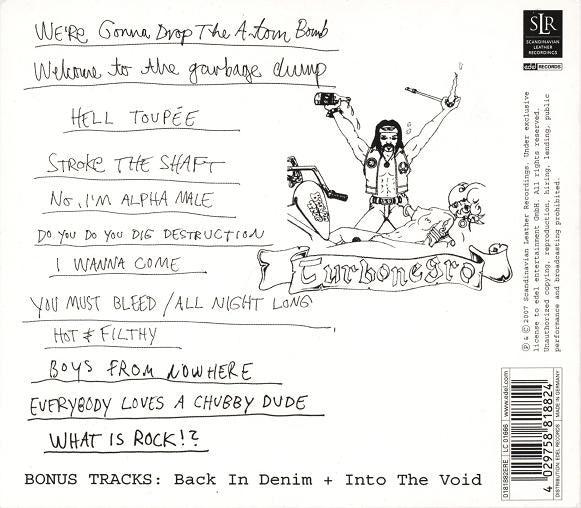 We're Gonna Drop The A-tom Bomb
Welcome to the garbage dump
HELL TOUPÉE
STROKE THE SHAFT
No, I'M ALPHA MALE
DO YOU DO YOU DIG DESTRUCTION
I WANNA COME
YOU MUST BLEED / ALL NIGHT LONG
HOT & FILTHY
BOYS FROM NOWHERE
EVERYBODY LOVES A CHUBBY DUDE
WHAT IS ROCK!?
BONUS TRACKS: Back In Denim + Into The Void
Turbonegro
SLR
SCANDINAVIAN
LEATHER
RECORDINGS
edel RECORDS
℗ & © 2007 Scandinavian Leather Recordings. Under exclusive
license to edel entertainment GmbH. All rights reserved.
Unauthorized copying, reproduction, hiring, lending, public
performance and broadcasting prohibited.
0181882ERE | LC 01666 | www.edel.com
4 029758 818824
DISTRIBUTION: EDEL RECORDS MADE IN GERMANY